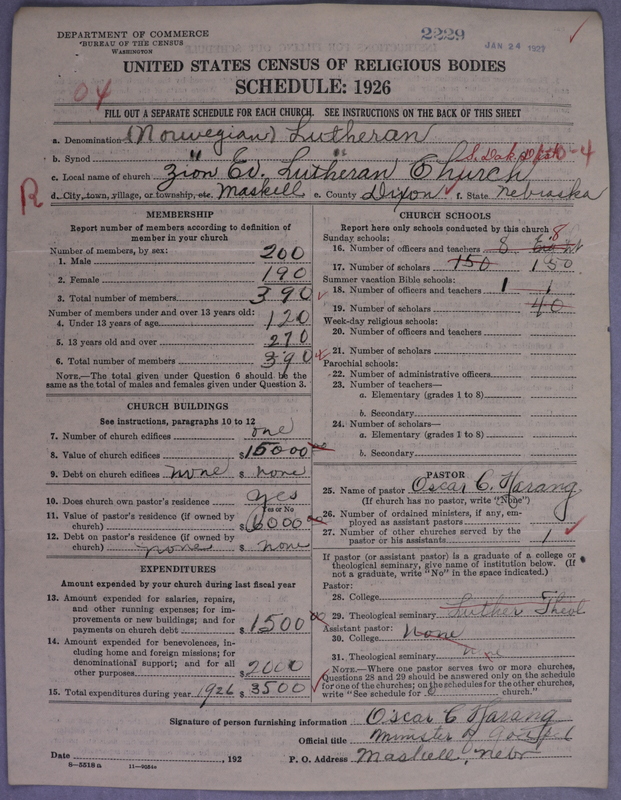 DEPARTMENT OF COMMERCE
BUREAU OF THE CENSUS
WASHINGTON
2229
JAN 24 1927
UNITED STATES CENSUS OF RELIGIOUS BODIES
SCHEDULE: 1926
04
FILL OUT A SEPARATE SCHEDULE FOR EACH CHURCH. SEE INSTRUCTIONS ON THE BACK OF THIS SHEET
a. Denomination (Norwegian) Lutheran
b. Synod " " S. Dak. Dist. 0-4
c. Local name of church Zion Ev. Lutheran Church
R
d. City, town, village, or township, etc. Maskell e. County Dixon f. State Nebraska
MEMBERSHIP
Report number of members according to definition of member in your church
Number of members, by sex:
1. Male 200
2. Female 190
3. Total number of members 390
Number of members under and over 13 years old:
4. Under 13 years of age 120
5. 13 years old and over 270
6. Total number of members 390
NOTE.—The total given under Question 6 should be the same as the total of males and females given under Question 3.
CHURCH BUILDINGS
See instructions, paragraphs 10 to 12
7. Number of church edifices one
8. Value of church edifices $15000 00
9. Debt on church edifices none $ none
10. Does church own pastor's residence yes
Yes or No
11. Value of pastor's residence (if owned by church) $6000 00
12. Debt on pastor's residence (if owned by church) none $ none
EXPENDITURES
Amount expended by your church during last fiscal year
13. Amount expended for salaries, repairs, and other running expenses; for improvements or new buildings; and for payments on church debt $1500 00
14. Amount expended for benevolences, including home and foreign missions; for denominational support; and for all other purposes 2000
15. Total expenditures during year 1926 $3500
CHURCH SCHOOLS
Report here only schools conducted by this church
Sunday schools:
16. Number of officers and teachers 8 8
17. Number of scholars 150 150
Summer vacation Bible schools:
18. Number of officers and teachers 1 1
19. Number of scholars 40
Week-day religious schools:
20. Number of officers and teachers
21. Number of scholars
Parochial schools:
22. Number of administrative officers
23. Number of teachers—
a. Elementary (grades 1 to 8)
b. Secondary
24. Number of scholars—
a. Elementary (grades 1 to 8)
b. Secondary
PASTOR
25. Name of pastor Oscar C. Harang
(If church has no pastor, write "None")
26. Number of ordained ministers, if any, employed as assistant pastors
27. Number of other churches served by the pastor or his assistants 1
If pastor (or assistant pastor) is a graduate of a college or theological seminary, give name of institution below. (If not a graduate, write "No" in the space indicated.)
Pastor:
28. College
29. Theological seminary Luther Theol
Assistant pastor:
30. College None
31. Theological seminary
NOTE.—Where one pastor serves two or more churches, Questions 28 and 29 should be answered only on the schedule for one of the churches; on the schedules for the other churches, write "See schedule for church."
Signature of person furnishing information Oscar C Harang
Official title Minister of Gospel
Date , 192 P. O. Address Maskell, Nebr
8—5518 a